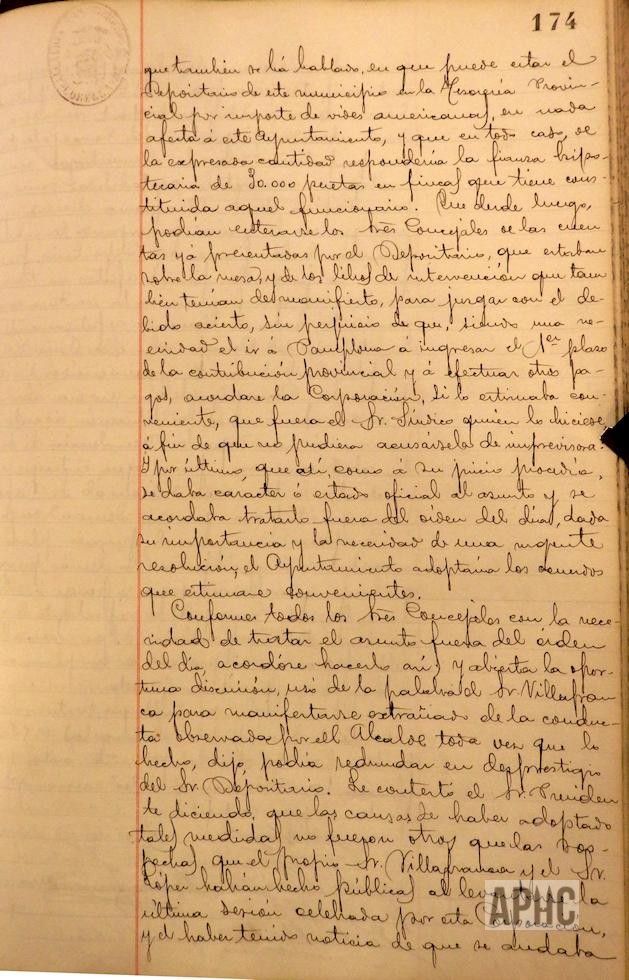 174
que tambien se há hablado, en que puede estar el
Depositario de este municipio en la Tesorería Provin-
cial por importe de vides americanas, en nada
afecta á este Ayuntamiento, y que en todo caso, de
la expresada cantidad respondería la fianza hipo-
tecaria de 30.000 pesetas en fincas que tiene cons-
tituida aquel funcionario. Que desde luego,
podían enterarse los tres Concejales de las cuen-
tas yá presentadas por el Depositario, que estaban
sobre la mesa, y de los libros de intervención que tam
bien tenían de manifiesto, para juzgar con el de-
bido acierto, sin perjuicio de que, siendo una ne-
cesidad el ir á Pamplona á ingresar el 1er plazo
de la contribución provincial y á efectuar otros pa-
gos, acordare la Corporación, si lo estimaba con-
veniente, que fuera el Sr. Síndico quien lo hiciese
á fin de que no pudiera acusársela de imprevisora.
Y por último, que así, como á su juicio procedía,
se daba carácter ó estado oficial al asunto y, se
acordaba tratarlo fuera del orden del día, dada
su importancia y la necesidad de una urgente
resolución, el Ayuntamiento adoptaría los acuerdos
que estimare convenientes.
Conformes todos los tres Concejales con la nece-
sidad de tratar el asunto fuera del órden
del día, acordóse hacerlo así; y abierta la opor-
tuna discusión, usó de la palabra el Sr. Villafran
ca para manifestarse extrañado de la conduc-
ta observada por el Alcalde toda vez que lo
hecho, dijo, podía redundar en desprestigio
del Sr. Depositario. Le contestó el Sr. Presiden
te diciendo, que las causas de haber adoptado
tales medidas no fueron otras que las sos-
pechas, que el propio Sr. Villafranca y el Sr.
López habían hecho públicas al levantarse la
última sesión celebrada por esta Corporación,
y el haber tenido noticia de que se andaba
APHC